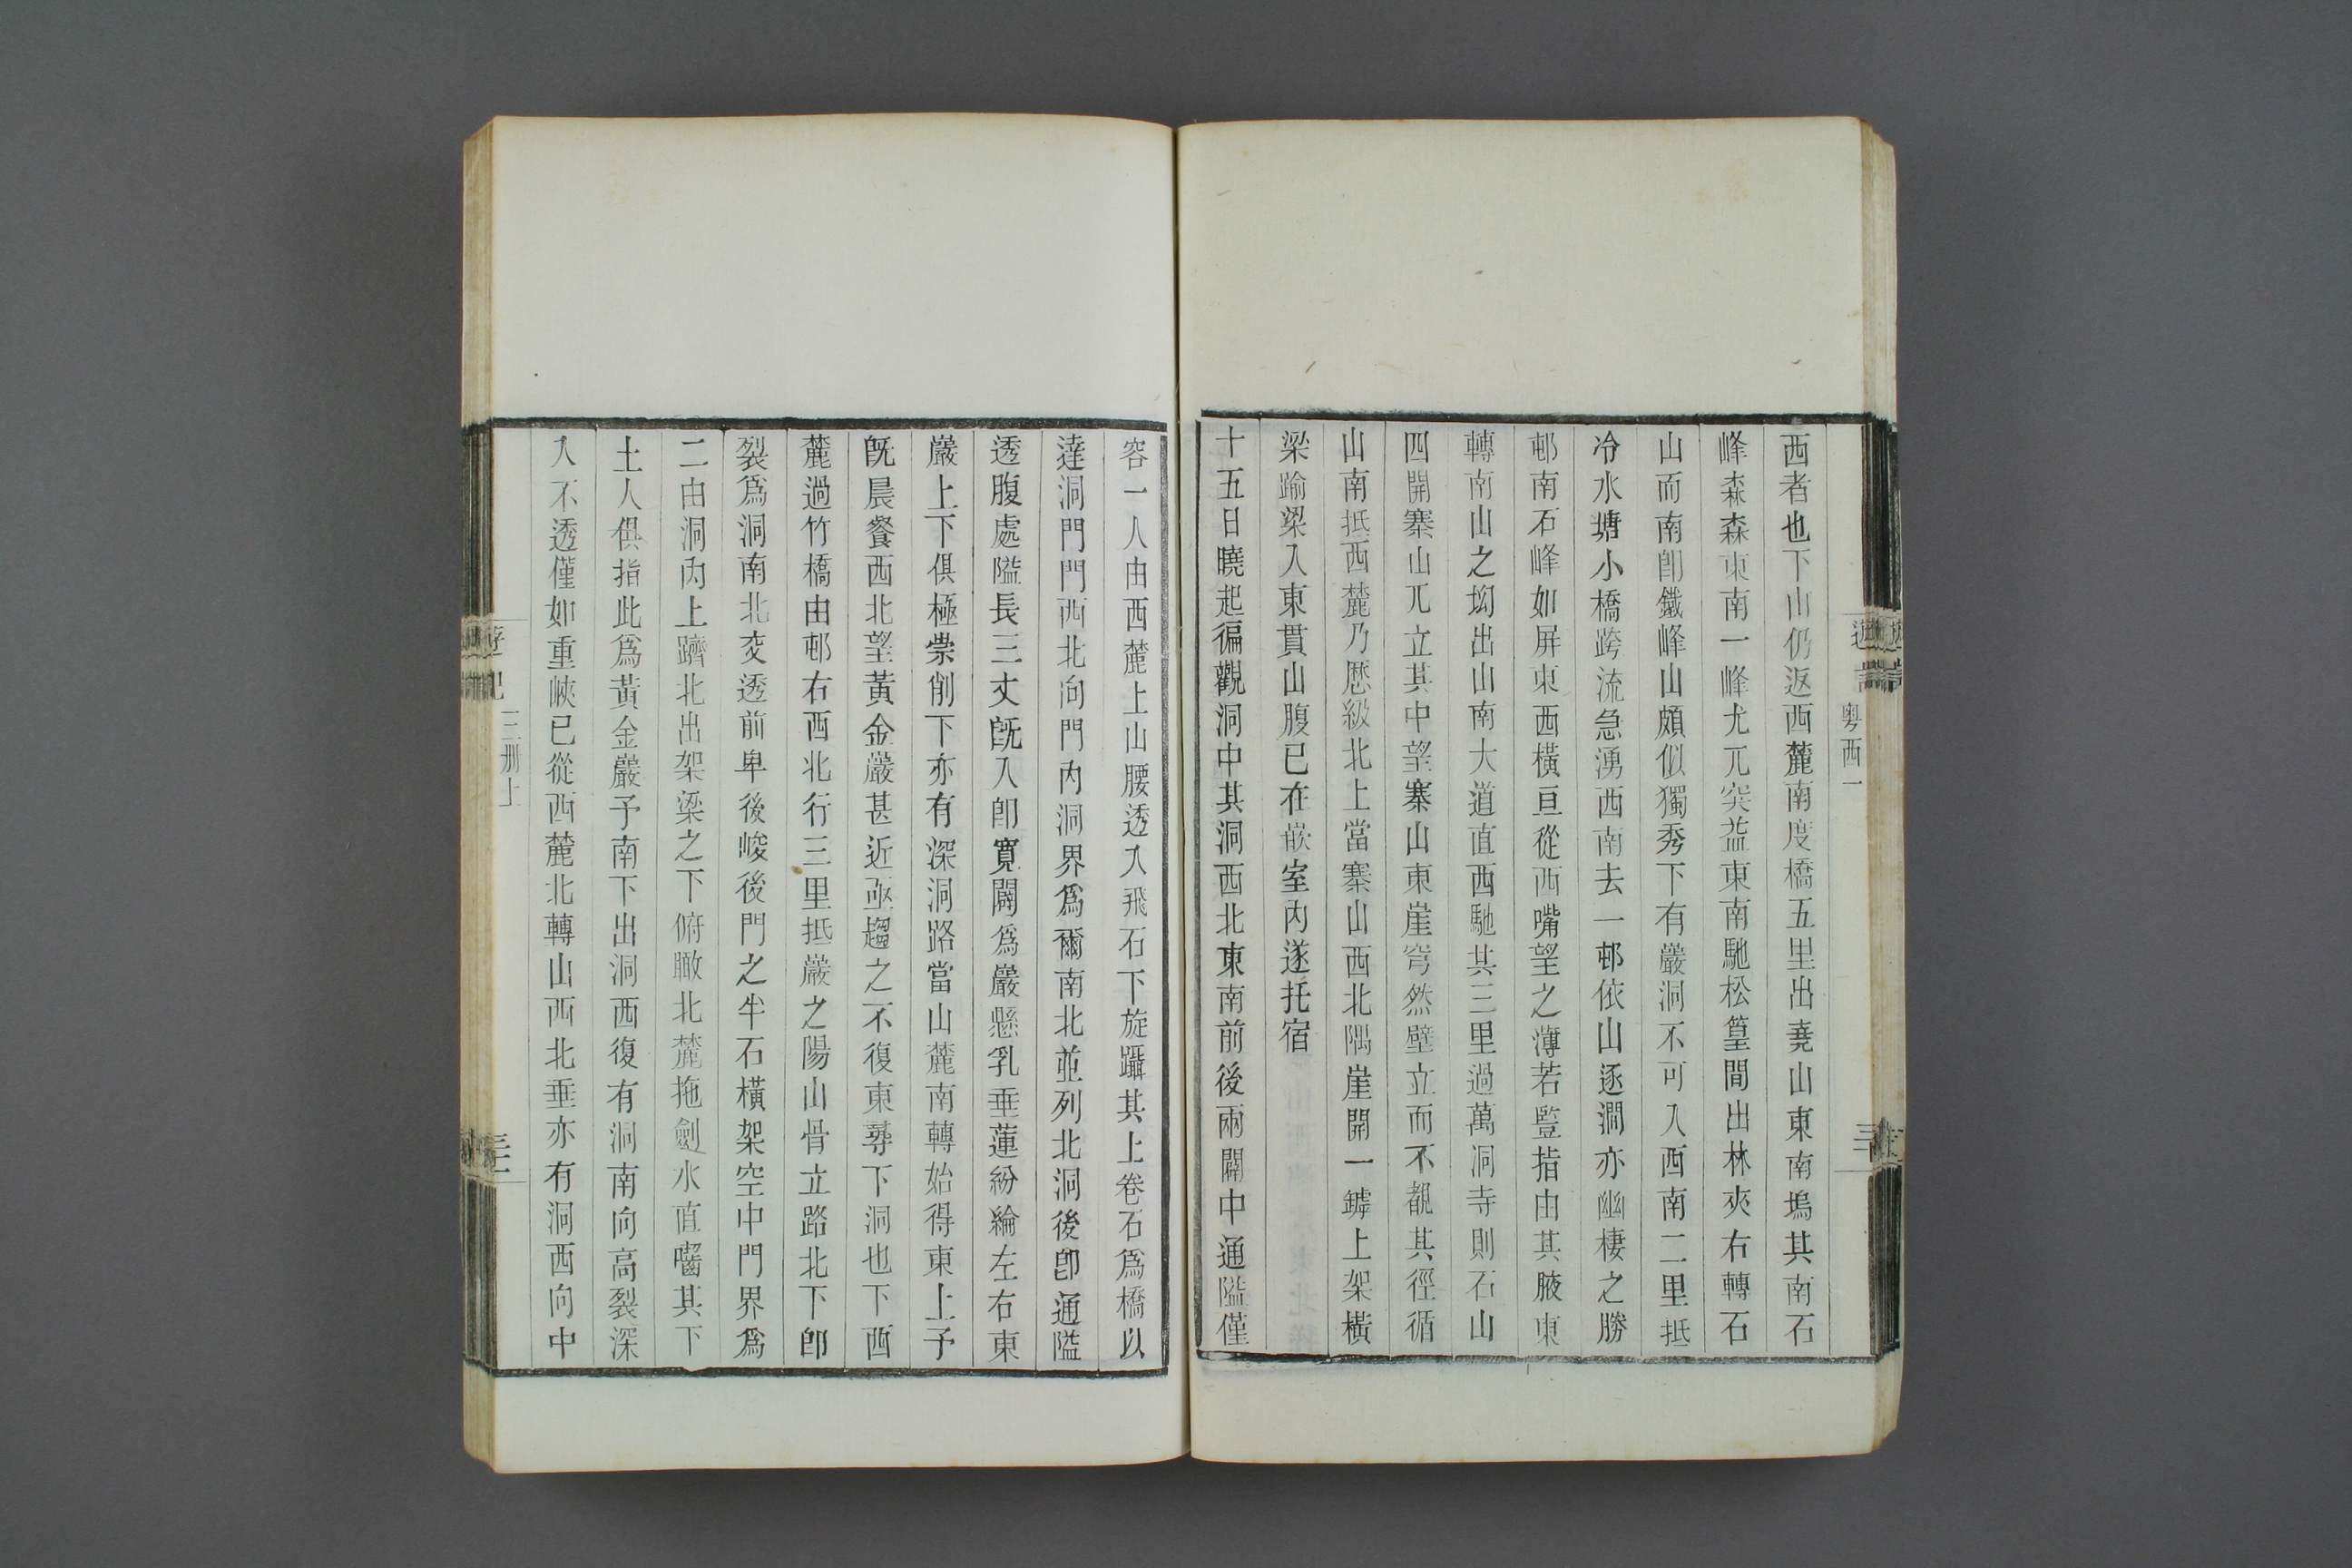 西者也下山仍返西麓南度橋五里出堯山東南塢其南石
峰森森東南一峰尤兀突益東南馳松篁間出林夾右轉石
山而南卽鐵峰山頗似獨秀下有巖洞不可入西南二里抵
冷水塘小橋跨流急湧西南去一邨依山逐澗亦幽棲之勝
邨南石峰如屏東西橫亘從西嘴望之薄若竪指由其腋東
轉南山之坳出山南大道直西馳其三里過萬洞寺則石山
四開寨山兀立其中望寨山東崖穹然壁立而不覩其徑循
山南抵西麓乃歷級北上當寨山西北隅崖開一罅上架橫
梁踰梁入東貫山腹已在嵌室內遂托宿
十五日曉起徧觀洞中其洞西北東南前後兩闢中通隘僅
容一人由西麓上山腰透入飛石下旋躡其上卷石爲橋以
達洞門門西北向門內洞界爲爾南北並列北洞後卽通隘
透腹處隘長三丈旣入卽寬闢爲巖懸乳垂蓮紛綸左右東
巖上下俱極崇削下亦有深洞路當山麓南轉始得東上予
旣晨餐西北望黃金巖甚近亟趨之不復東尋下洞也下西
麓過竹橋由邨右西北行三里抵巖之陽山骨立路北下卽
裂爲洞南北交透前卑後峻後門之半石橫架空中門界爲
二由洞內上躋北出架梁之下俯瞰北麓拖劍水直嚙其下
土人俱指此爲黃金巖予南下出洞西復有洞南向高裂深
入不透僅如重峽已從西麓北轉山西北垂亦有洞西向中
粵西一
遊記
三冊上